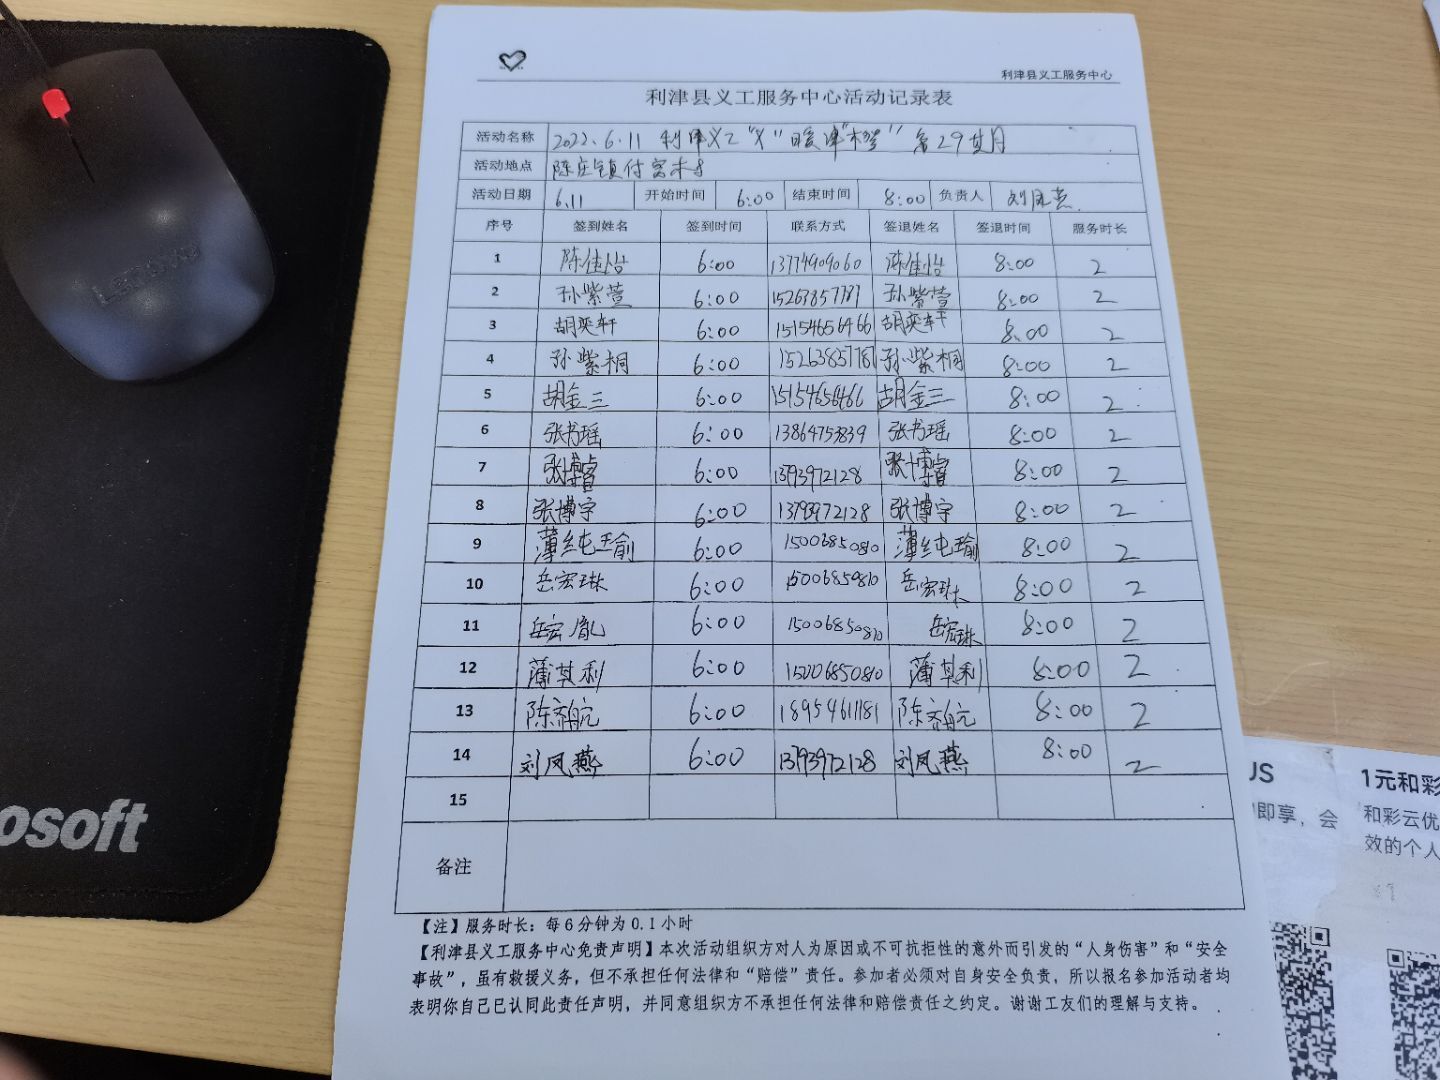 利津县义工服务中心
利津县义工服务中心活动记录表
活动名称 2022.6.11 利津义工"义"暖津 第29 月
活动地点 陈庄镇付窝
活动日期 6.11 开始时间 6:00 结束时间 8:00 负责人 刘凤燕
序号 签到姓名 签到时间 联系方式 签退姓名 签退时间 服务时长
1 陈佳怡 6:00 13774909060 陈佳怡 8:00 2
2 孙紫萱 6:00 15263857787 孙紫萱 8:00 2
3 胡奕轩 6:00 15154656466 胡奕轩 8:00 2
4 孙紫桐 6:00 15263857787 孙紫桐 8:00 2
5 胡金三 6:00 15154656466 胡金三 8:00 2
6 张书瑶 6:00 13864753839 张书瑶 8:00 2
7 张博睿 6:00 13793972128 张博睿 8:00 2
8 张博宇 6:00 13793972128 张博宇 8:00 2
9 薄纯瑜 6:00 15006850810 薄纯瑜 8:00 2
10 岳宏琳 6:00 15006850810 岳宏琳 8:00 2
11 岳宏胤 6:00 15006850810 岳宏琳 8:00 2
12 蒲其利 6:00 15006850810 蒲其利 8:00 2
13 陈奕航 6:00 18954611181 陈奕航 8:00 2
14 刘凤燕 6:00 13793972128 刘凤燕 8:00 2
15
备注
【注】服务时长：每6分钟为0.1小时
【利津县义工服务中心免责声明】本次活动组织方对人为原因或不可抗拒性的意外而引发的“人身伤害”和“安全
事故”，虽有救援义务，但不承担任何法律和“赔偿”责任。参加者必须对自身安全负责，所以报名参加活动者均
表明你自己已认同此责任声明，并同意组织方不承担任何法律和赔偿责任之约定。谢谢工友们的理解与支持。
Lenovo
osoft
US
即享，会
1元和彩
和彩云优
效的个人